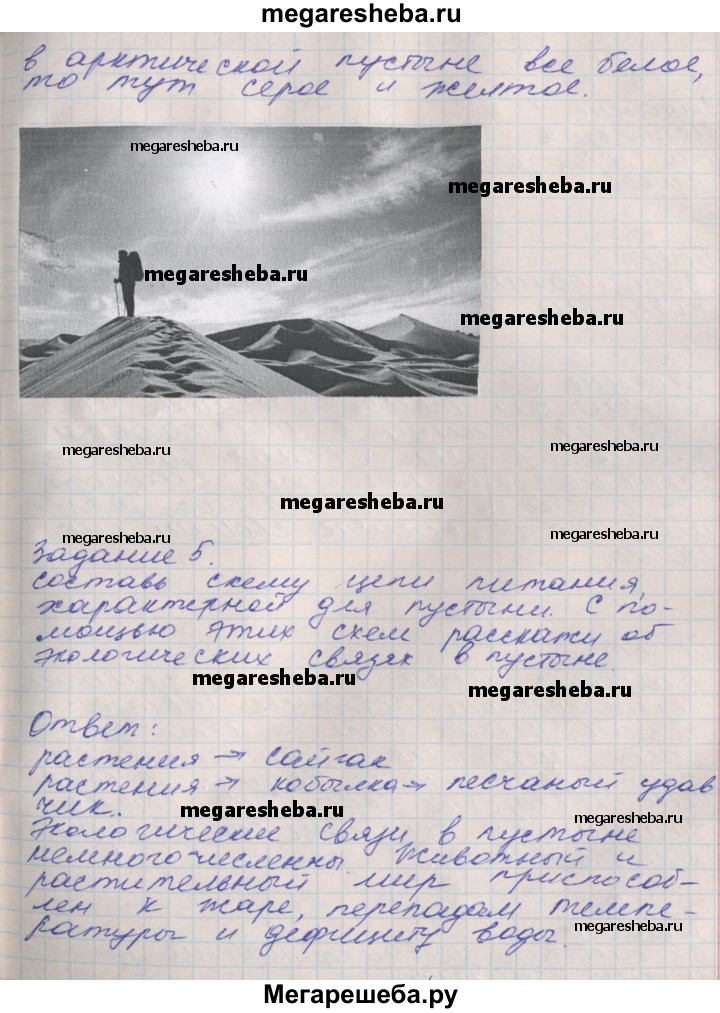 megaresheba.ru
в арктической пустыне все белое,
то тут серое и желтое.
megaresheba.ru
megaresheba.ru
megaresheba.ru
megaresheba.ru
megaresheba.ru
megaresheba.ru
megaresheba.ru
megaresheba.ru
megaresheba.ru
Задание 5.
составь схему цепи питания,
характерной для пустыни. С по-
мощью этих схем расскажи об
экологических связях в пустыне.
megaresheba.ru
megaresheba.ru
Ответ:
растения → сайгак
растения → кобылка → песчаный удав
чик.
megaresheba.ru
megaresheba.ru
Экологические связи в пустыне
немногочесленны. Животный и
растительный мир приспособ-
лен к жаре, перепадам темпе-
ратуры и дефициту воды.
megaresheba.ru
Мегарешеба.ру